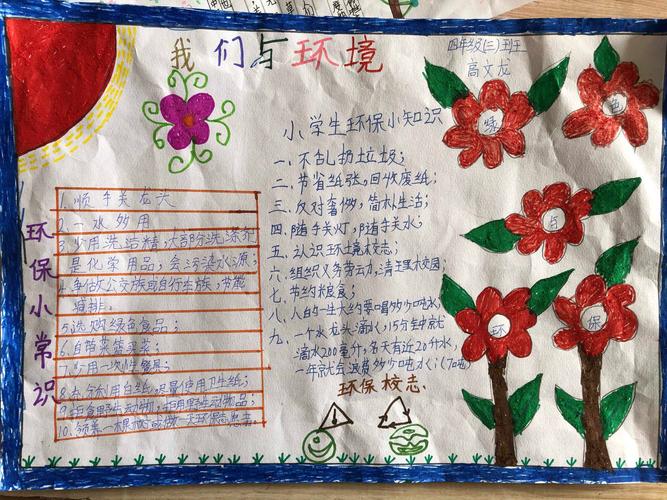 我们与环境
四年级(三)班
高文龙
环保小常识
1.顺手关龙头
2.一水多用
3.少用洗洁精,大部份洗涤剂
是化学用品,会污染水源;
4.争做公交族或自行车族,节能
减排.
5选购绿色食品;
6.自带菜篮买菜;
7.少用一次性餐具;
8.充分利用白纸,尽量使用卫生纸;
9.拒食野生动物,拒用野生动物品;
10.领养一棵树或做一天环保志愿者.
小学生环保小知识
一.不乱扔垃圾;
二.节省纸张,回收废纸;
三.反对奢侈,简朴生活;
四.随手关灯,随手关水;
五.认识环境标志;
六.组织义务劳动,清理校园;
七.节约粮食;
八.人的一生大约要喝
九.一个水龙头滴水,15分钟就
滴水200毫升,每天有近20升水,
一年就会浪费 (7吨)
环保标志.
绿
色
与
环
保